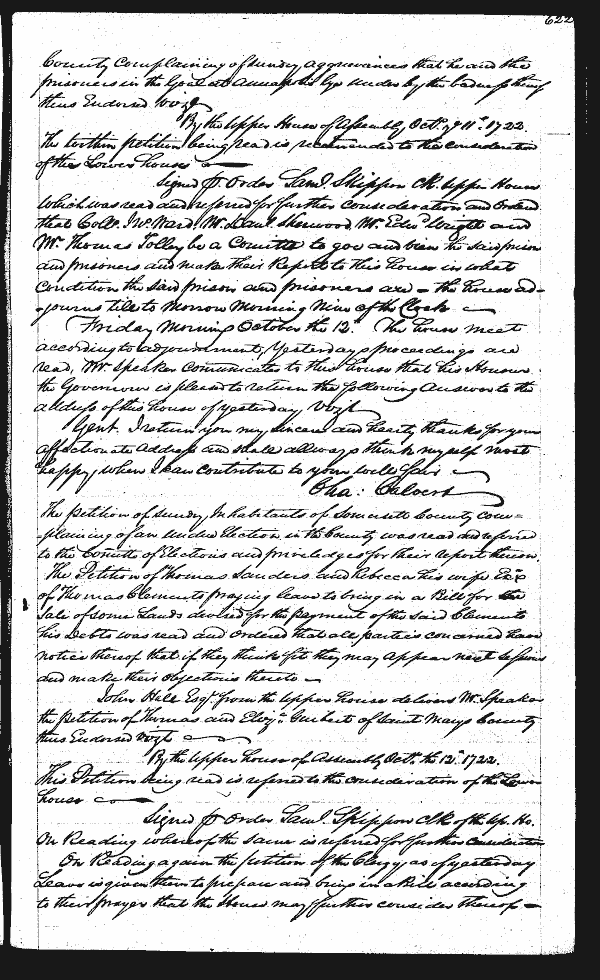 622
County Complaining of sundry aggrievances that he and the
prisoners in the Goal at Annapolis lye under by the badness thereof
thus Endorsed vizt
By the Upper House of Assembly Octr. ye 11th. 1722.
The within petition being read is recommended to the consideration
of the Lower house
Signed p. Order Saml. Skippon Clk. Upper House
which was read and referred for further consideration and Ordered
that Coll. Jno. Ward, Mr. Danl. Sherwood Mr. Edwd. Wright and
Mr. Thomas Tolley be a Comitte to goe and view the said prison
and prisoners and make their Report to this house in what
Condition the said prison and prisoners are – the house ad-
-journs till to Morrow Morning Nine of the Clock
Friday Morning October the 12th. The house meet
according to adjournment, Yesterdays proceedings are
read, Mr. Speaker Comunicates to this house that his Honour
the Governour is pleased to return the following Answer to the
address of this house of yesterday vizt
Gent. I return you my sincere and hearty thanks for your
affectionate address and shall allways think myself most
happy, when I can Contribute to your well fair
Cha: Calvert
The petition of sundry Inhabitants of Somersett County com=
-plaining of an undue Election in the County was read and referred
to the Comitte of Elections and priviledges for their report thereon.
The Petition of Thomas Sanders and Rebecca his wife Exx
of Thomas Clements praying leave to bring in a Bill for the
Sale of some Lands devised for the payment of the said Clements
his Debts was read and Ordered that all parties concerned have
notice thereof that if they think fit they may appear next sessions
and make their objections thereto
John Hall Esqr. from the Upper house delivers Mr. Speaker
the petition of Thomas and Elizth. of Saint Marys County
thus Endorsed vizt
By the Upper house of Assembly Octr. the 12th. 1722.
This Petition being read is referred to the consideration of the Lower
house
Signed p Order Saml. Skippon Clk of the Up. Ho.
On Reading whereof the same is referred for further Consideration
On Reading again the petition of the Clergy as of yesterday
Leave is given them to prepare and bring in a Bill according
to their prayer that the House may further consider thereof